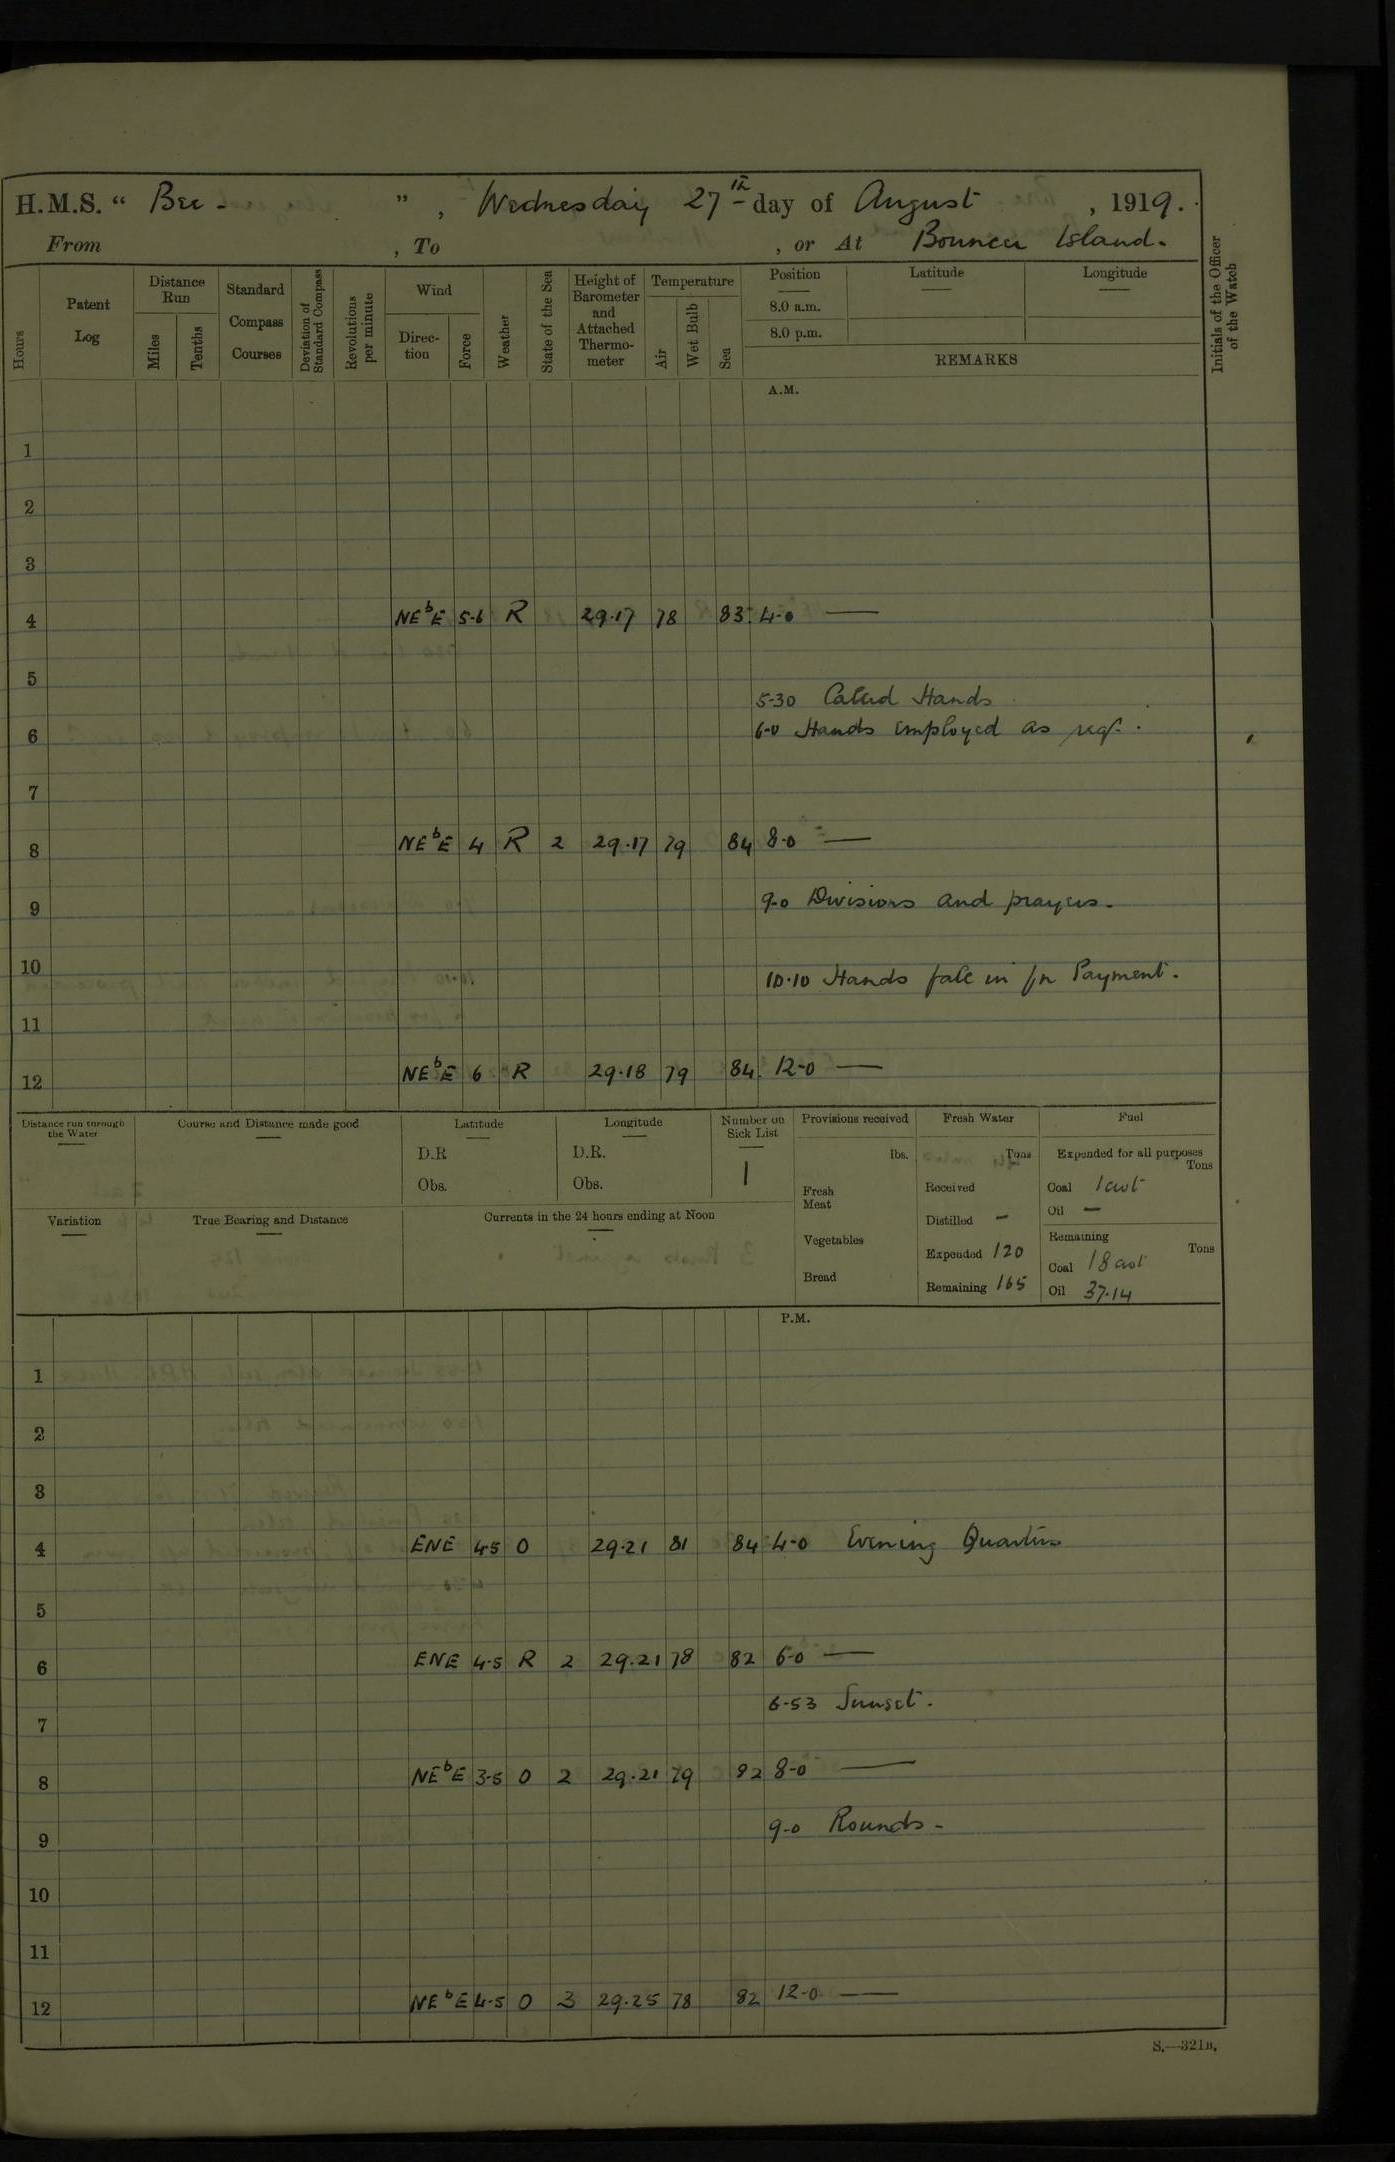 H.M.S. “ Bee - ” , Wednesday 27th day of August , 1919.
From , To , or At Bouncer Island.
Hours
Patent Log
Distance Run
Miles
Tenths
Standard Compass Courses
Deviation of Standard Compass
Revolutions per minute
Wind
Direc-tion
Force
Weather
State of the Sea
Height of Barometer and Attached Thermo-meter
Temperature
Air
Wet Bulb
Sea
Position
8.0 a.m.
8.0 p.m.
Latitude
Longitude
REMARKS
Initials of the Officer of the Watch
A.M.
1
2
3
4 NEbE 5-6 R 29.17 78 83 4-0 —
5
5-30 Called Hands
6 6-0 Hands employed as req.
7
8 NEbE 4 R 2 29.17 79 84 8-0 —
9 9-0 Divisions and prayers.
10
10.10 Hands fall in for Payment.
11
12 NEbE 6 R 29.18 79 84 12-0 —
Distance run through the Water
Course and Distance made good
Latitude
D.R
Obs.
Longitude
D.R.
Obs.
Number on Sick List
1
Provisions received
lbs.
Fresh Meat
Vegetables
Bread
Fresh Water
Tons
Received
Distilled —
Expended 120
Remaining 165
Fuel
Expended for all purposes
Tons
Coal 1 cwt
Oil —
Remaining
Tons
Coal 18 cwt
Oil 37.14
Variation
True Bearing and Distance
Currents in the 24 hours ending at Noon
P.M.
1
2
3
4 ENE 4-5 O 29.21 81 84 4-0 Evening Quarters
5
6 ENE 4-5 R 2 29.21 78 82 6-0 —
6-53 Sunset.
7
8 NEbE 3-5 O 2 29.21 79 82 8-0 —
9-0 Rounds -
9
10
11
12 NEbE 4-5 O 3 29.25 78 82 12-0 —
S.—321B.